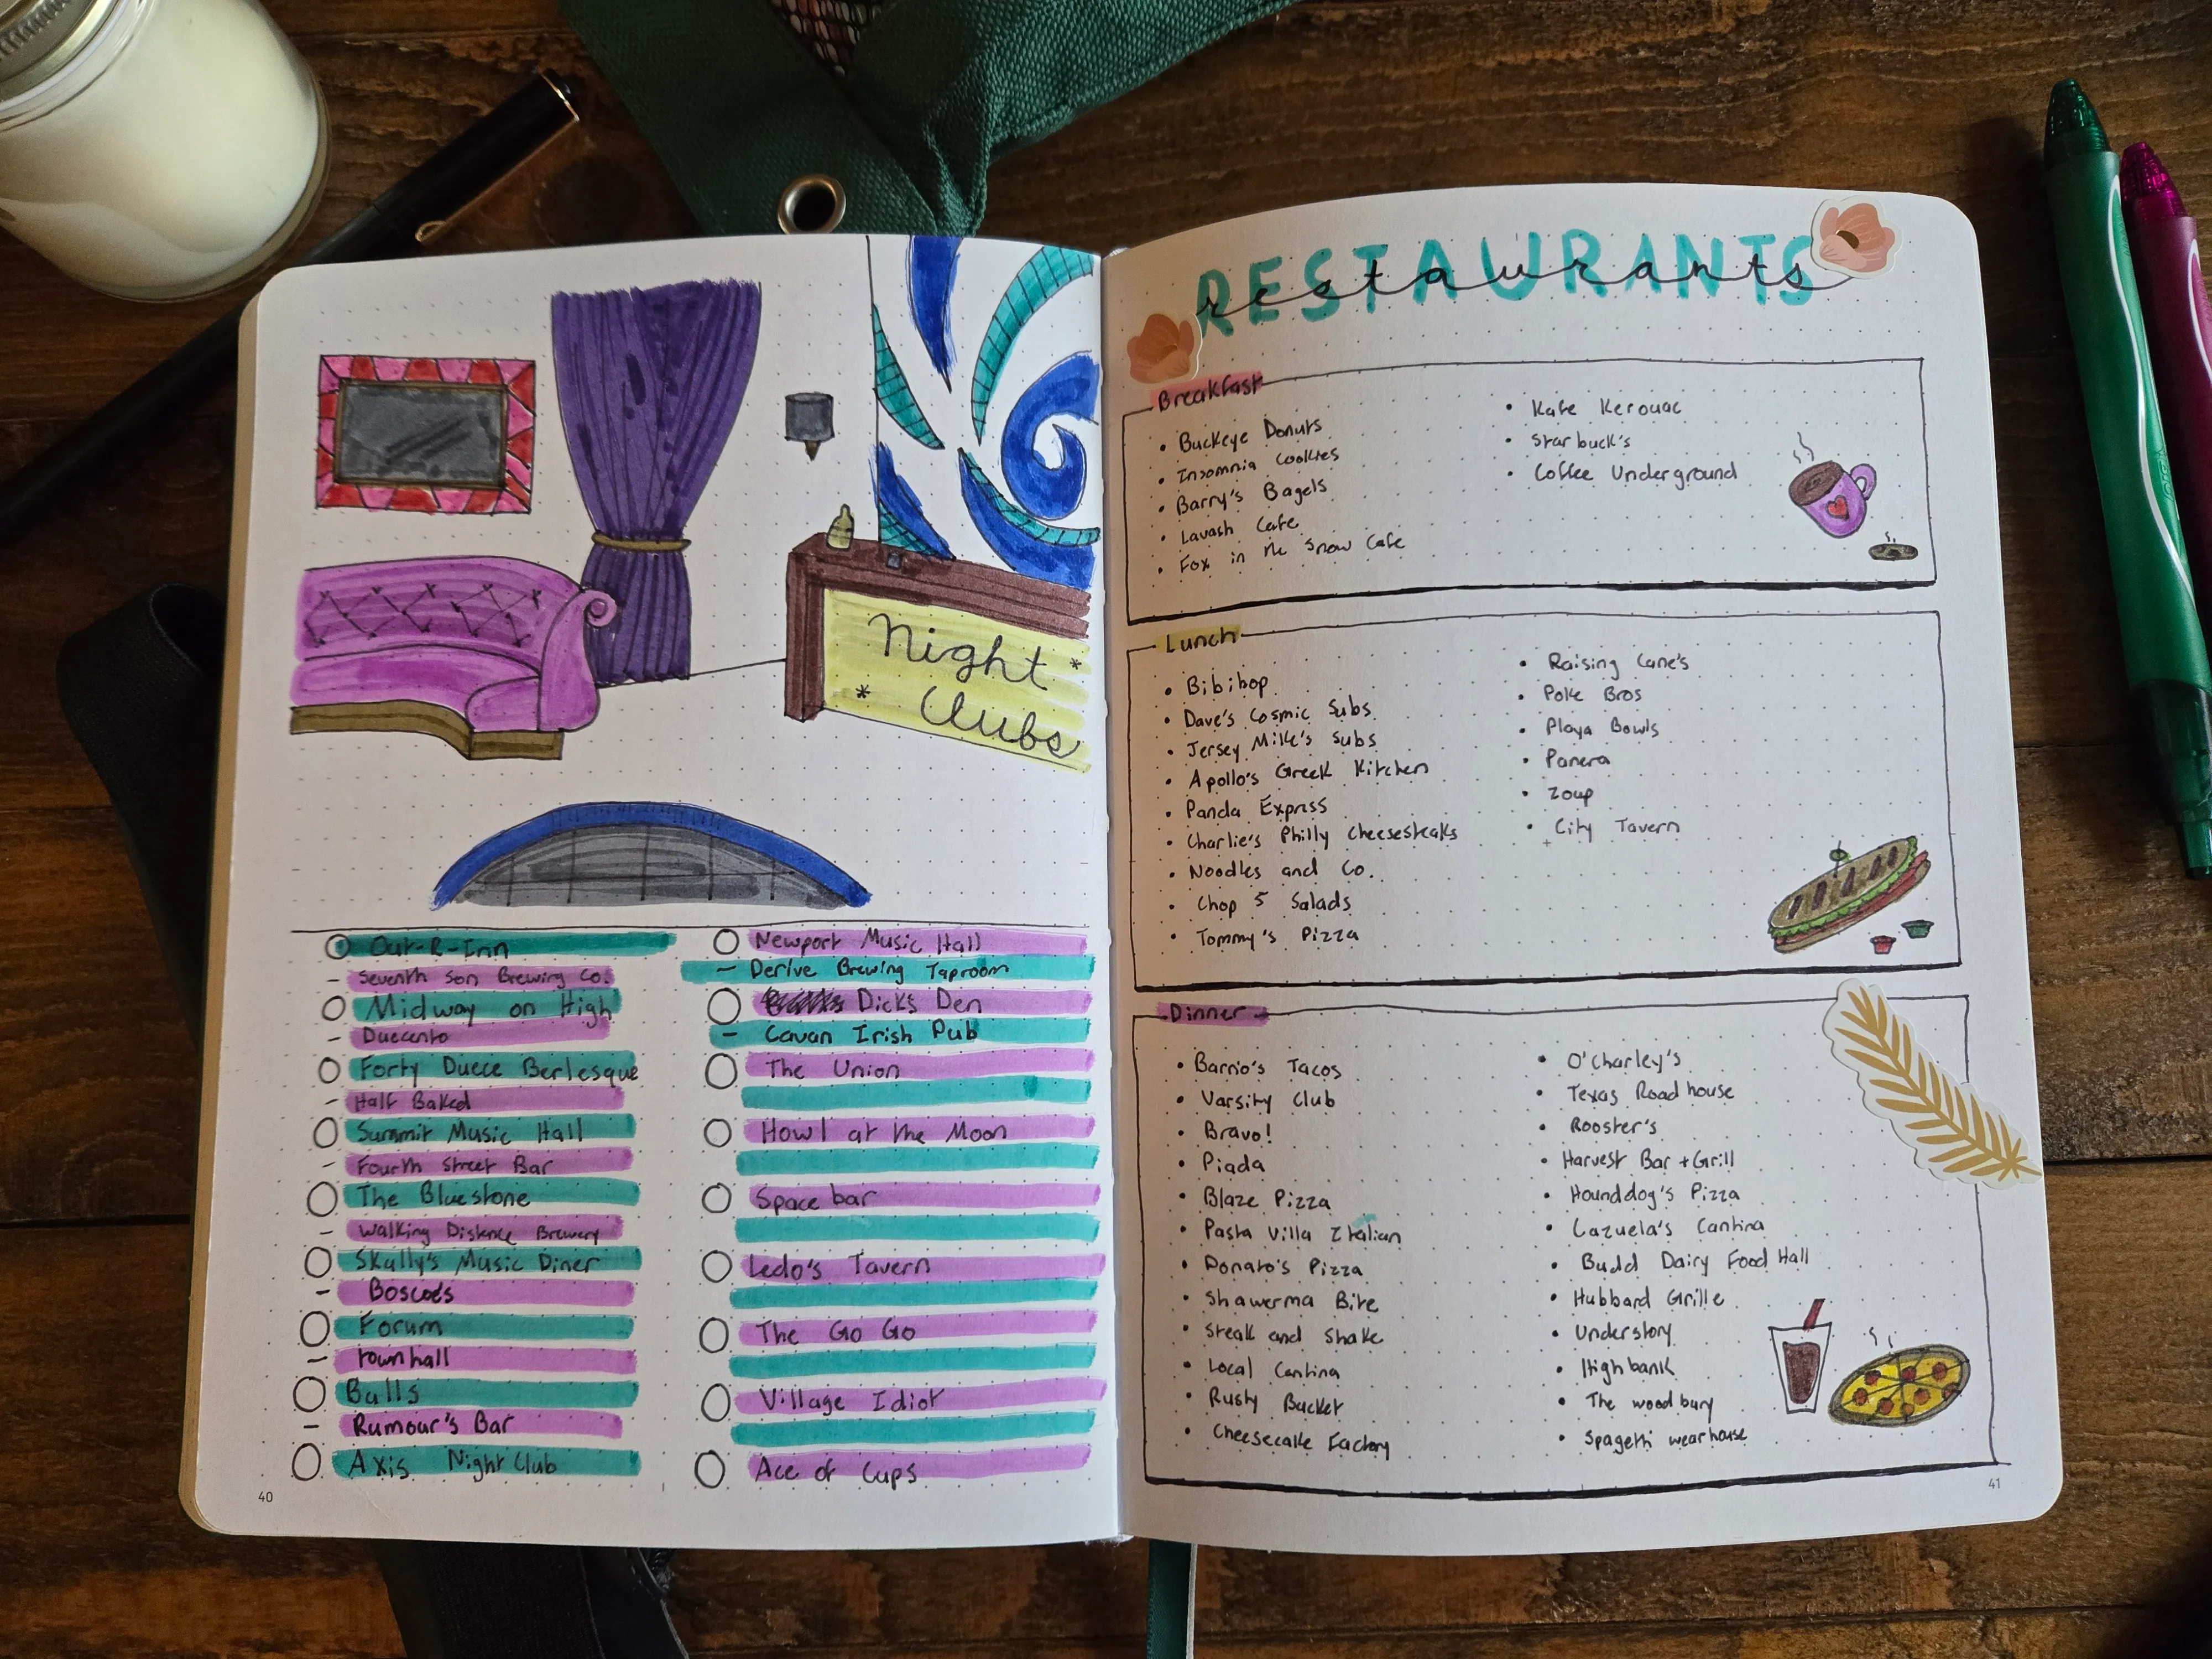 Night
Clubs
Out-R-Inn
Seventh Son Brewing Co.
Midway on High
Duecento
Forty Duece Berlesque
Half Baked
Summit Music Hall
Fourth Street Bar
The Bluestone
Walking Distance Brewery
Skully's Music Diner
Boscoe's
Forum
townhall
Balls
Rumour's Bar
Axis Night Club
Newport Music Hall
Derive Brewing Taproom
Dicks Den
Cavan Irish Pub
The Union
Howl at the Moon
Space bar
Ledo's Tavern
The Go Go
Village Idiot
Ace of Cups
40
RESTAURANTS
restaurants
Breakfast
• Buckeye Donuts
• Insomnia Cookies
• Barry's Bagels
• Lavash Cafe
• Fox in the Snow Cafe
• Kafe Kerouac
• Starbuck's
• Coffee Underground
Lunch
• Bibibop
• Dave's Cosmic Subs
• Jersey Mike's Subs
• Apollo's Greek Kitchen
• Panda Express
• Charlie's Philly Cheesesteaks
• Noodles and Co.
• Chop 5 Salads
• Tommy's Pizza
• Raising Cane's
• Poke Bros
• Playa Bowls
• Panera
• Zoup
• City Tavern
Dinner
• Barrio's Tacos
• Varsity Club
• Bravo!
• Piada
• Blaze Pizza
• Pasta Villa Italian
• Donato's Pizza
• Shawerma Bite
• Steak and Shake
• Local Cantina
• Rusty Bucket
• Cheesecake Factory
• O'Charley's
• Texas Road house
• Rooster's
• Harvest Bar + Grill
• Hounddog's Pizza
• Cazuela's Cantina
• Budd Dairy Food Hall
• Hubbard Grille
• Understory
• High bank
• The wood bury
• Spagetti wearhouse
41